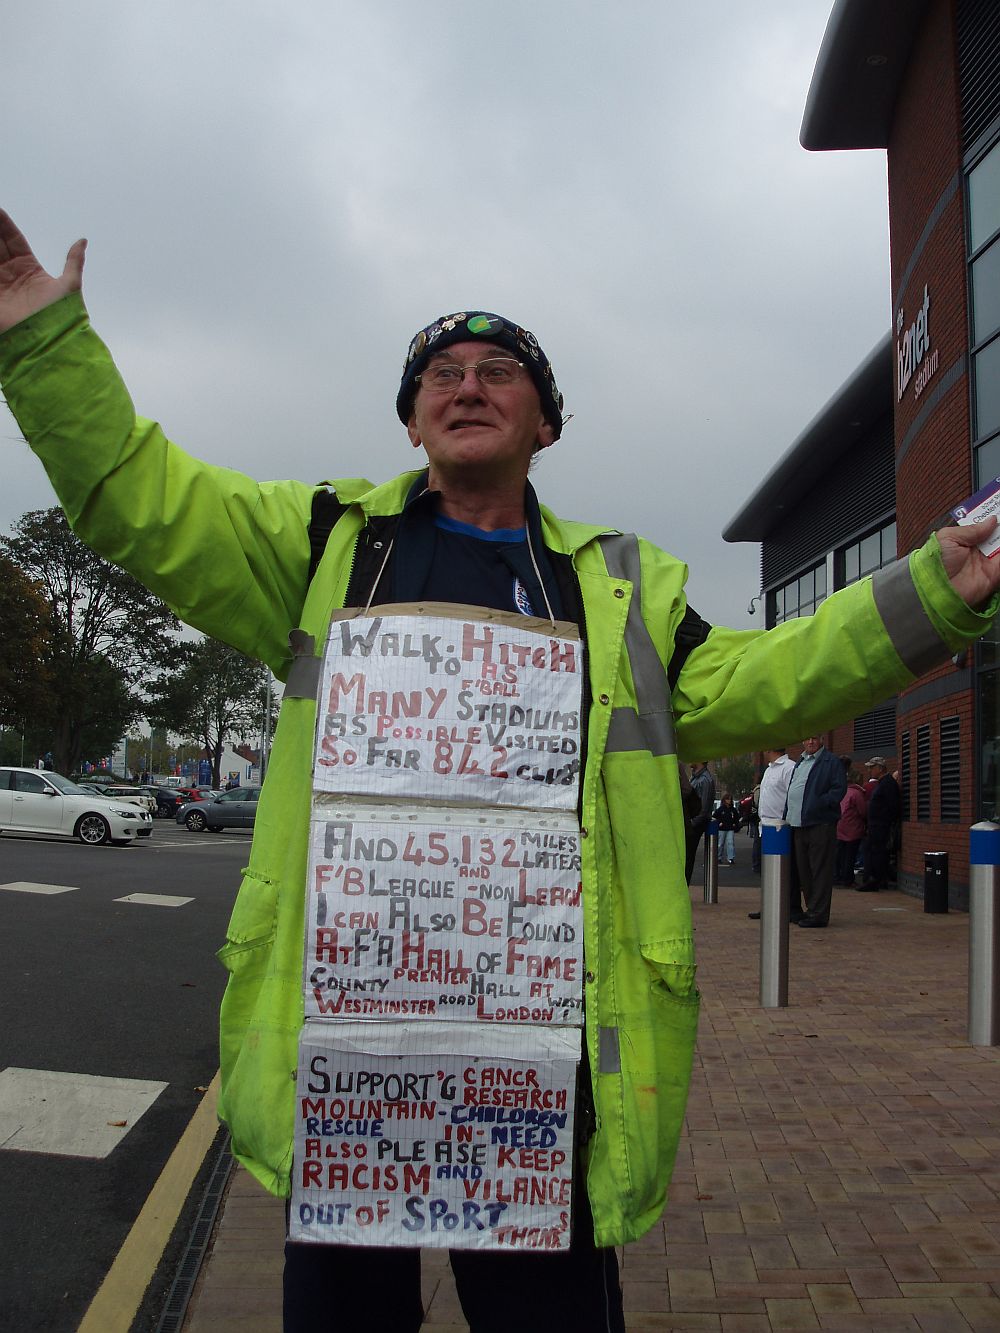 WALK. HITCH
TO AS
MANY F'BALL STADIUMS
AS POSSIBLE VISITED
SO FAR 842 CLUB
AND 45,132 MILES LATER
F'B LEAGUE AND -NON LEAGU
I CAN ALSO BE FOUND
AT F'A HALL OF FAME
COUNTY PREMIER HALL AT
WESTMINSTER ROAD LONDON WEST
SUPPORT'G CANCR RESEARCH
MOUNTAIN- CHILDREN
RESCUE IN- NEED
ALSO PLEASE KEEP
RACISM AND VILANCE
OUT OF SPORT
THANKS
the
b2net
stadium
Chesterfield